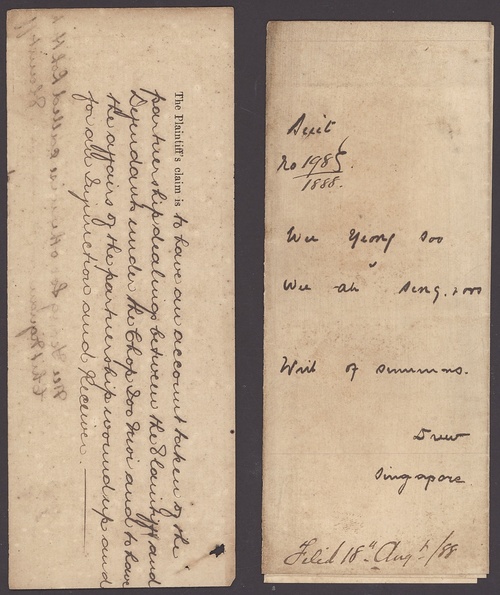 The Plaintiff's claim is to have an account taken of the
partnership dealings between the Plaintiff and
Defendant under the Chop Soo and to have
the affairs of the partnership wound up and
for an Injunction and Receiver.
Suit
No 1985
1888.
Wee Yeong Soo
v
Wee ah Seng
Writ of summons.
Drew
Singapore
Filed 18th Augt /88